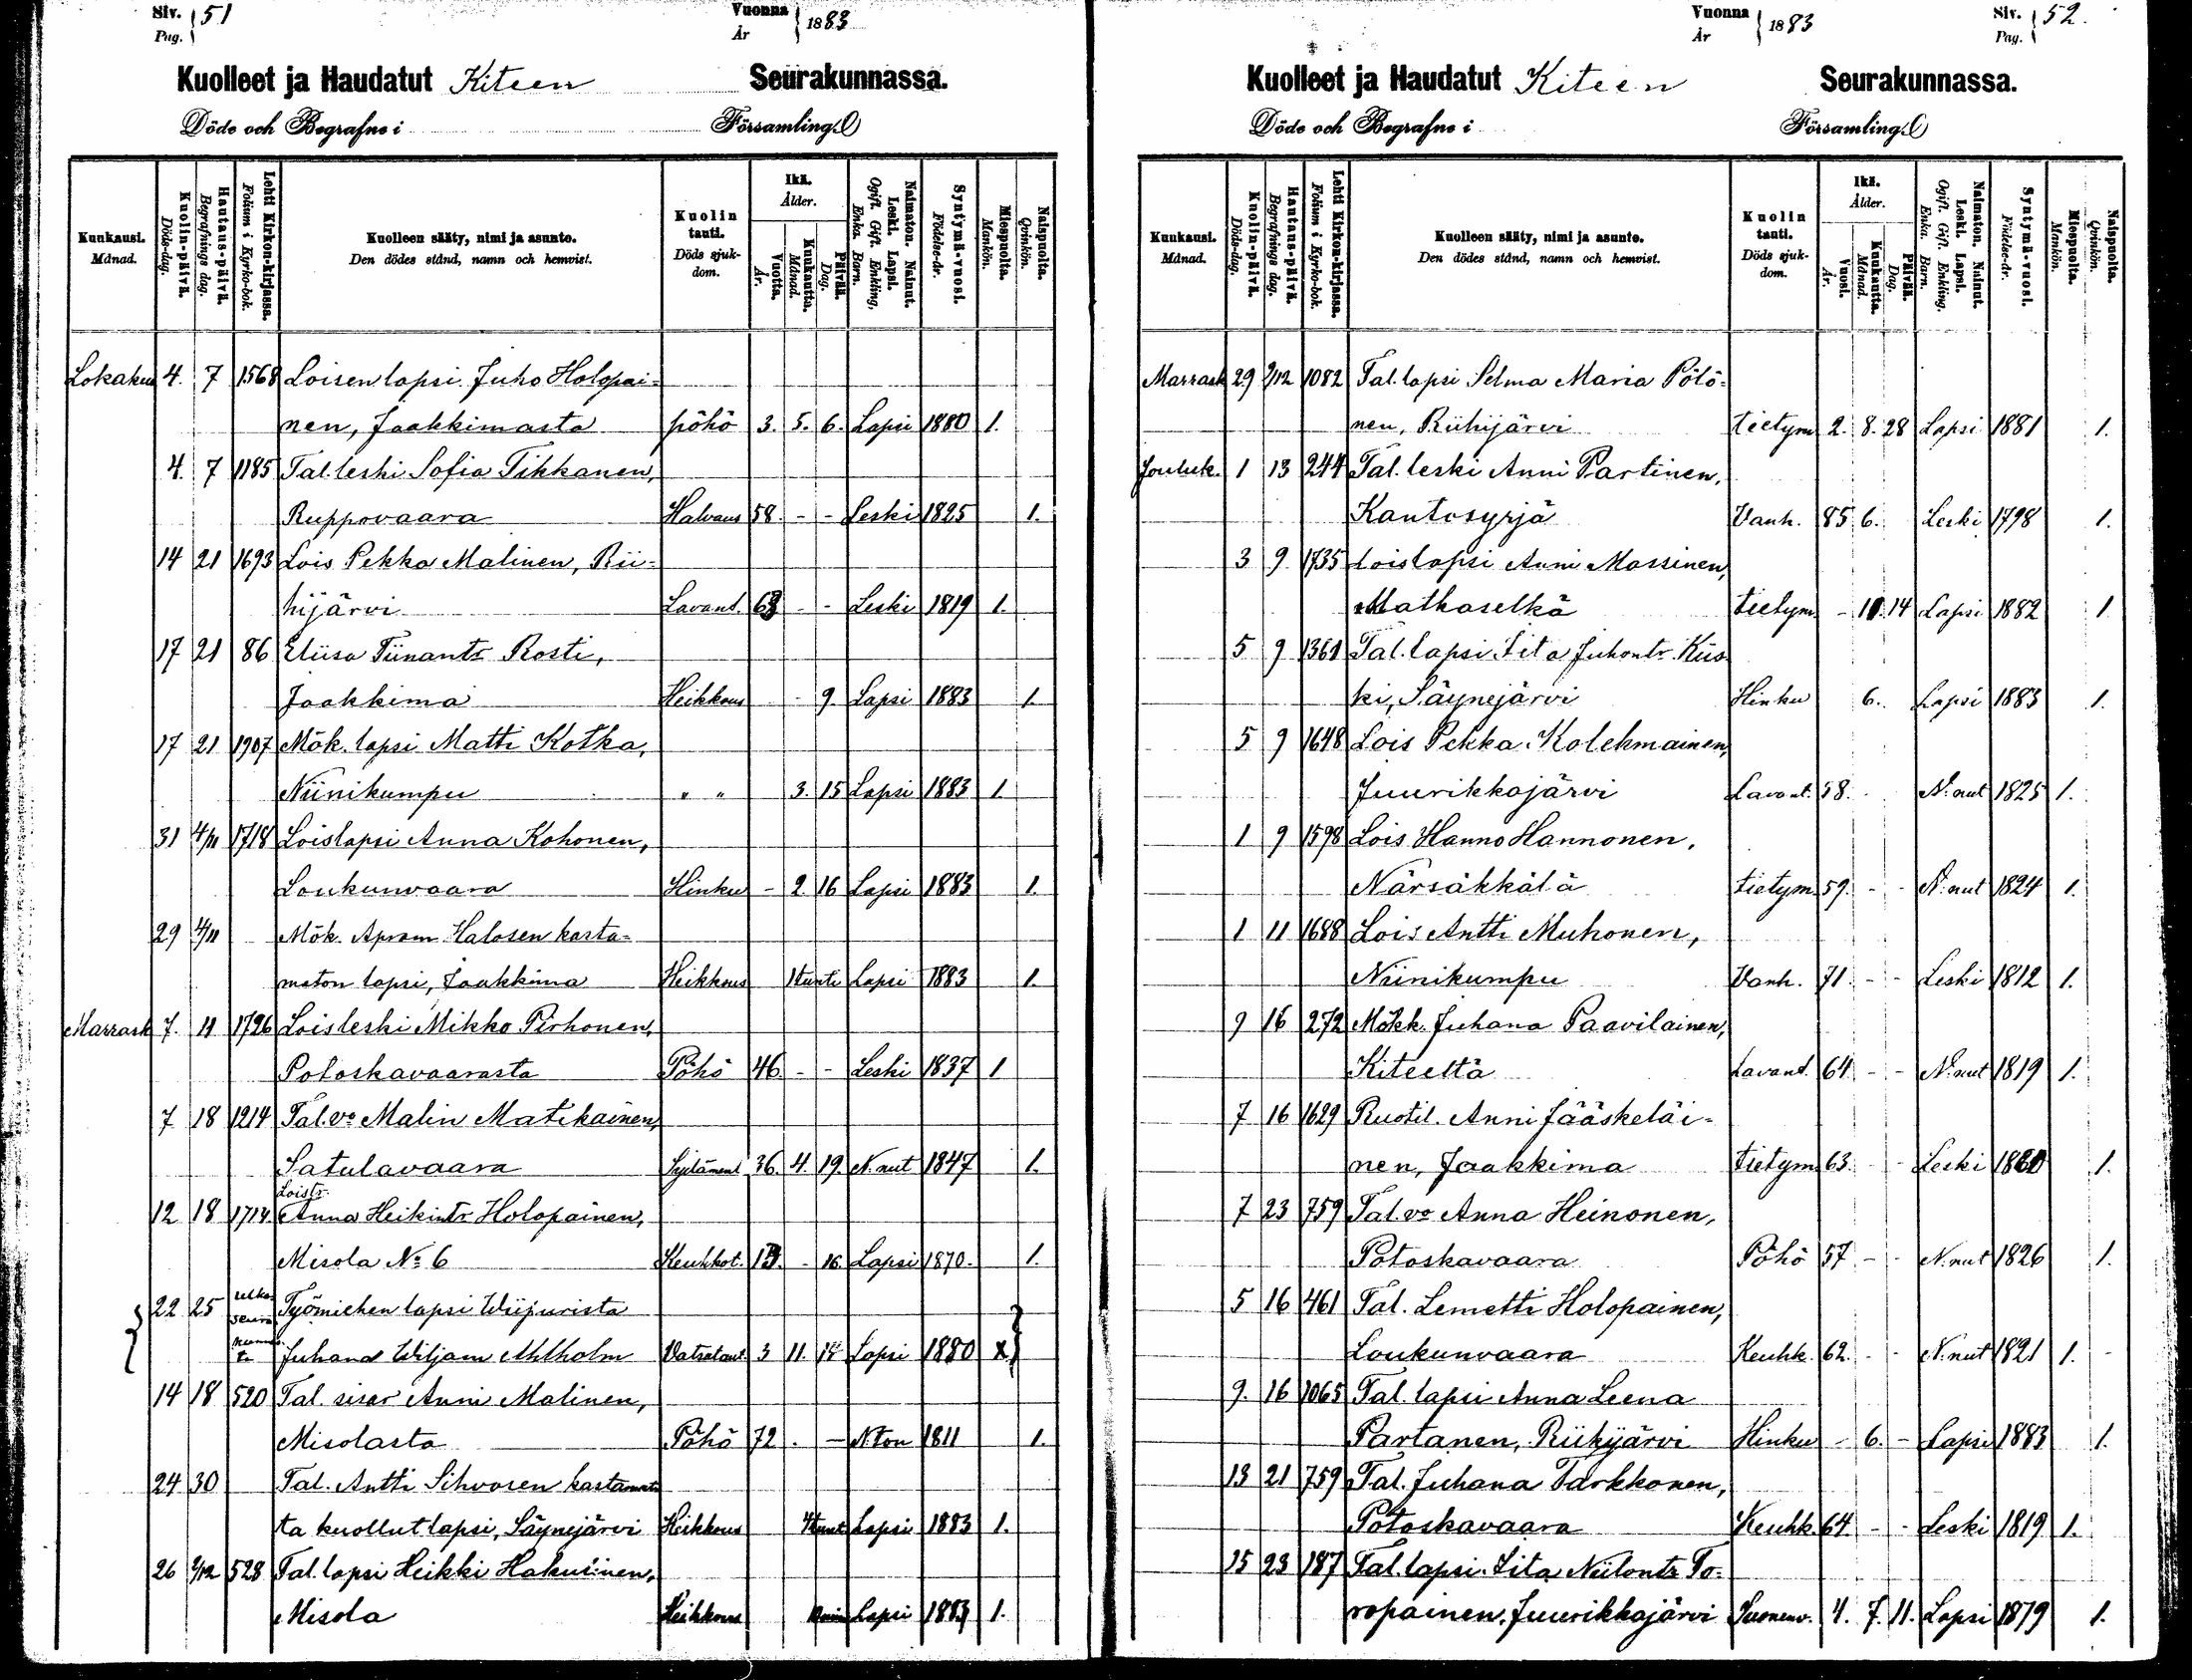 Siv. Pag. } 51
Vuonna År } 1883
Kuolleet ja Haudatut Kiteen Seurakunnassa.
Döde och Begrafne i Församling.
Kuukausi. Månad.
Kuolin-päivä. Döds-dag.
Hautaus-päivä. Begrafnings dag.
Lehti Kirkon-kirjassa. Folium i Kyrko-bok.
Kuolleen sääty, nimi ja asunto. Den dödes stånd, namn och hemvist.
Kuolin tauti. Döds sjukdom.
Ikä. Ålder.
Vuotta. År.
Kuukautta. Månad.
Päivää. Dag.
Naimaton. Nainut. Leski. Lapsi. Ogift. Gift. Enkling, Enka. Barn.
Syntymä-vuosi. Födelse-år.
Miespuolta. Mankön.
Naispuolta. Qvinkön.
Lokakuu 4. 7 1568 Loisen lapsi Juho Holopai=
nen, Jaakkimasta pöhö 3. 5. 6. Lapsi 1880 1.
4 7 1185 Tal. leski Sofia Tikkanen,
Ruppovaara Halvaus 58. - - Leski 1825 1.
14 21 1693 Lois Pekka Malinen, Rii=
hijärvi Lavant. 63 - - Leski 1819 1.
17 21 86 Eliisa Tiinantr Rosti,
Jaakkima Heikkous - 9. Lapsi 1883 1.
17 21 1907 Mök. lapsi Matti Kotka,
Niinikumpu " " 3. 15 Lapsi 1883 1.
31 4/11 1718 Loislapsi Anna Kohonen,
Loukunvaara Hinku - 2. 16 Lapsi 1883 1.
29 4/11 Mök. Apram Halosen kasta=
maton lapsi, Jaakkima Heikkous 1 tunti Lapsi 1883 1.
Marrask 7. 11 1726 Loisleski Mikko Pirhonen,
Potoskavaarasta Pöhö 46. - - Leski 1837 1
7 18 1214 Tal. vo Malin Matikainen,
Satulavaara Sydäment 36. 4. 19. N. nut 1847 1.
Loistr.
12 18 1714. Anna Heikintr Holopainen,
Misola No 6 Keuhkot. 13. - 16. Lapsi 1870. 1.
22 25 ulko seura kunnas ta Työmiehen lapsi Wiipurista
Juhana Wiljam Ahlholm Vatsataut. 3 11. 14 Lapsi 1880 x
14 18 520 Tal. sisar Anni Malinen,
Misolasta Pöhö 72 . - N. ton 1811 1.
24 30 Tal. Antti Sihvosen kastamat
ta kuollut lapsi, Säynejärvi Heikkous 4 tunt Lapsi 1883 1.
26 2/12 528 Tal. lapsi Heikki Hakulinen,
Misola Heikkous Lapsi 1883 1.
Vuonna År } 1883
Siv. Pag. } 52.
Kuolleet ja Haudatut Kiteen Seurakunnassa.
Döde och Begrafne i Församling.
Kuukausi. Månad.
Kuolin-päivä. Döds-dag.
Hautaus-päivä. Begrafnings dag.
Lehti Kirkon-kirjassa. Folium i Kyrko-bok.
Kuolleen sääty, nimi ja asunto. Den dödes stånd, namn och hemvist.
Kuolin tauti. Döds sjukdom.
Ikä. Ålder.
Vuosi. År.
Kuukautta. Månad.
Päivää. Dag.
Naimaton. Nainut. Leski. Lapsi. Ogift. Gift. Enkling. Enka. Barn.
Syntymä-vuosi. Födelse-år.
Miespuolta. Mankön.
Naispuolta. Qvinkön.
Marrask 29 2/12 1082 Tal. lapsi Selma Maria Pölö=
nen, Riihijärvi tietym 2. 8. 28 Lapsi 1881 1.
Jouluk. 1 13 244 Tal. leski Anni Partinen,
Kantosyrjä Vanh. 85 6. Leski 1798 1.
3 9 1735 Loislapsi Anni Massinen,
Matkaselkä tietym - 10. 14 Lapsi 1882 1
5 9 1361 Tal. lapsi Iita Juhontr. Kiis
ki, Säynejärvi Hinku 6. Lapsi 1883 1.
5 9 1648 Lois Pekka Kolehmainen,
Juurikkajärvi Lavant. 58. N. nut 1825 1.
1 9 1598 Lois Hanno Hannonen,
Närsäkkälä tietym 59. - - N. nut 1824 1.
1 11 1688 Lois Antti Muhonen,
Niinikumpu Vanh. 71. - - Leski 1812 1.
9 16 272 Mökk. Juhana Paavilainen,
Kiteeltä Lavant. 64. - - N. nut 1819 1.
7 16 1629 Ruotil. Anni Jääskeläi-
nen, Jaakkima tietym 63. - Leski 1820 1.
7 23 759 Tal. vo Anna Heinonen,
Potoskavaara Pöhö 57 - - N. nut 1826 1.
5 16 461 Tal. Lemetti Holopainen,
Loukunvaara Keuhk. 62. - - N. nut 1821 1.
9. 16 1065 Tal. lapsi Anna Leena
Partanen, Riihijärvi Hinku - 6. - Lapsi 1883 1.
13 21 759 Tal. Juhana Tarkkonen,
Potoskavaara Keuhk. 64 - - Leski 1819 1.
15 23 187 Tal. lapsi Iita Niilontr To=
ropainen, Juurikkajärvi Suonenv. 4. 7. 11. Lapsi 1879 1.